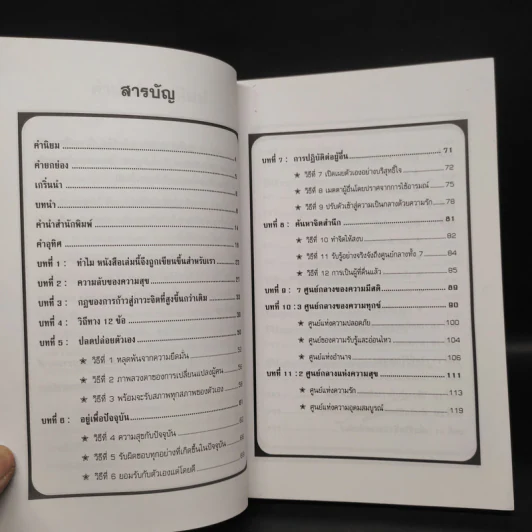 สารบัญ
คำนิยม
คำยกย่อง
เกริ่นนำ
บทนำ
คำนำสำนักพิมพ์
คำอุทิศ
บทที่ 1 : ทำไม หนังสือเล่มนี้จึงถูกเขียนขึ้นสำหรับเรา
บทที่ 2 : ความลับของความสุข
บทที่ 3 : กฎของการก้าวสู่ภาวะจิตที่สูงขึ้นกว่าเดิม
บทที่ 4 : วิถีทาง 12 ข้อ
บทที่ 5 : ปลดปล่อยตัวเอง
★ วิธีที่ 1 หลุดพ้นจากความยึดมั่น
★ วิธีที่ 2 ภาพลวงตาของการเปลี่ยนแปลงผู้คน
★ วิธีที่ 3 พร้อมจะรับสภาพทุกสภาพของตัวเอง
บทที่ 6 : อยู่เพื่อปัจจุบัน
★ วิธีที่ 4 ความสุขกับปัจจุบัน
★ วิธีที่ 5 รับผิดชอบทุกอย่างที่เกิดขึ้นในปัจจุบัน
★ วิธีที่ 6 ยอมรับกับตัวเองแต่โดยดี
บทที่ 7 : การปฏิบัติต่อผู้อื่น 71
★ วิธีที่ 7 เปิดเผยตัวเองอย่างบริสุทธิ์ใจ 72
★ วิธีที่ 8 เมตตาผู้อื่นโดยปราศจากการใช้อารมณ์ 75
★ วิธีที่ 9 ปรับตัวเข้าสู่ความเป็นกลางด้วยความรัก 78
บทที่ 8 : ค้นหาจิตสำนึก 81
★ วิธีที่ 10 ทำจิตให้สงบ 82
★ วิธีที่ 11 รับรู้อย่างจริงจังถึงศูนย์กลางทั้ง 7 84
★ วิธีที่ 12 การเป็นผู้ที่ตื่นแล้ว 85
บทที่ 9 : 7 ศูนย์กลางของความมีสติ 89
บทที่ 10 : 3 ศูนย์กลางของความทุกข์ 99
★ ศูนย์แห่งความปลอดภัย 100
★ ศูนย์ของความรับรู้และอ่อนไหว 104
★ ศูนย์แห่งอำนาจ 106
บทที่ 11 : 2 ศูนย์กลางแห่งความสุข 111
★ ศูนย์แห่งความรัก 113
★ ศูนย์แห่งความอุดมสมบูรณ์ 119